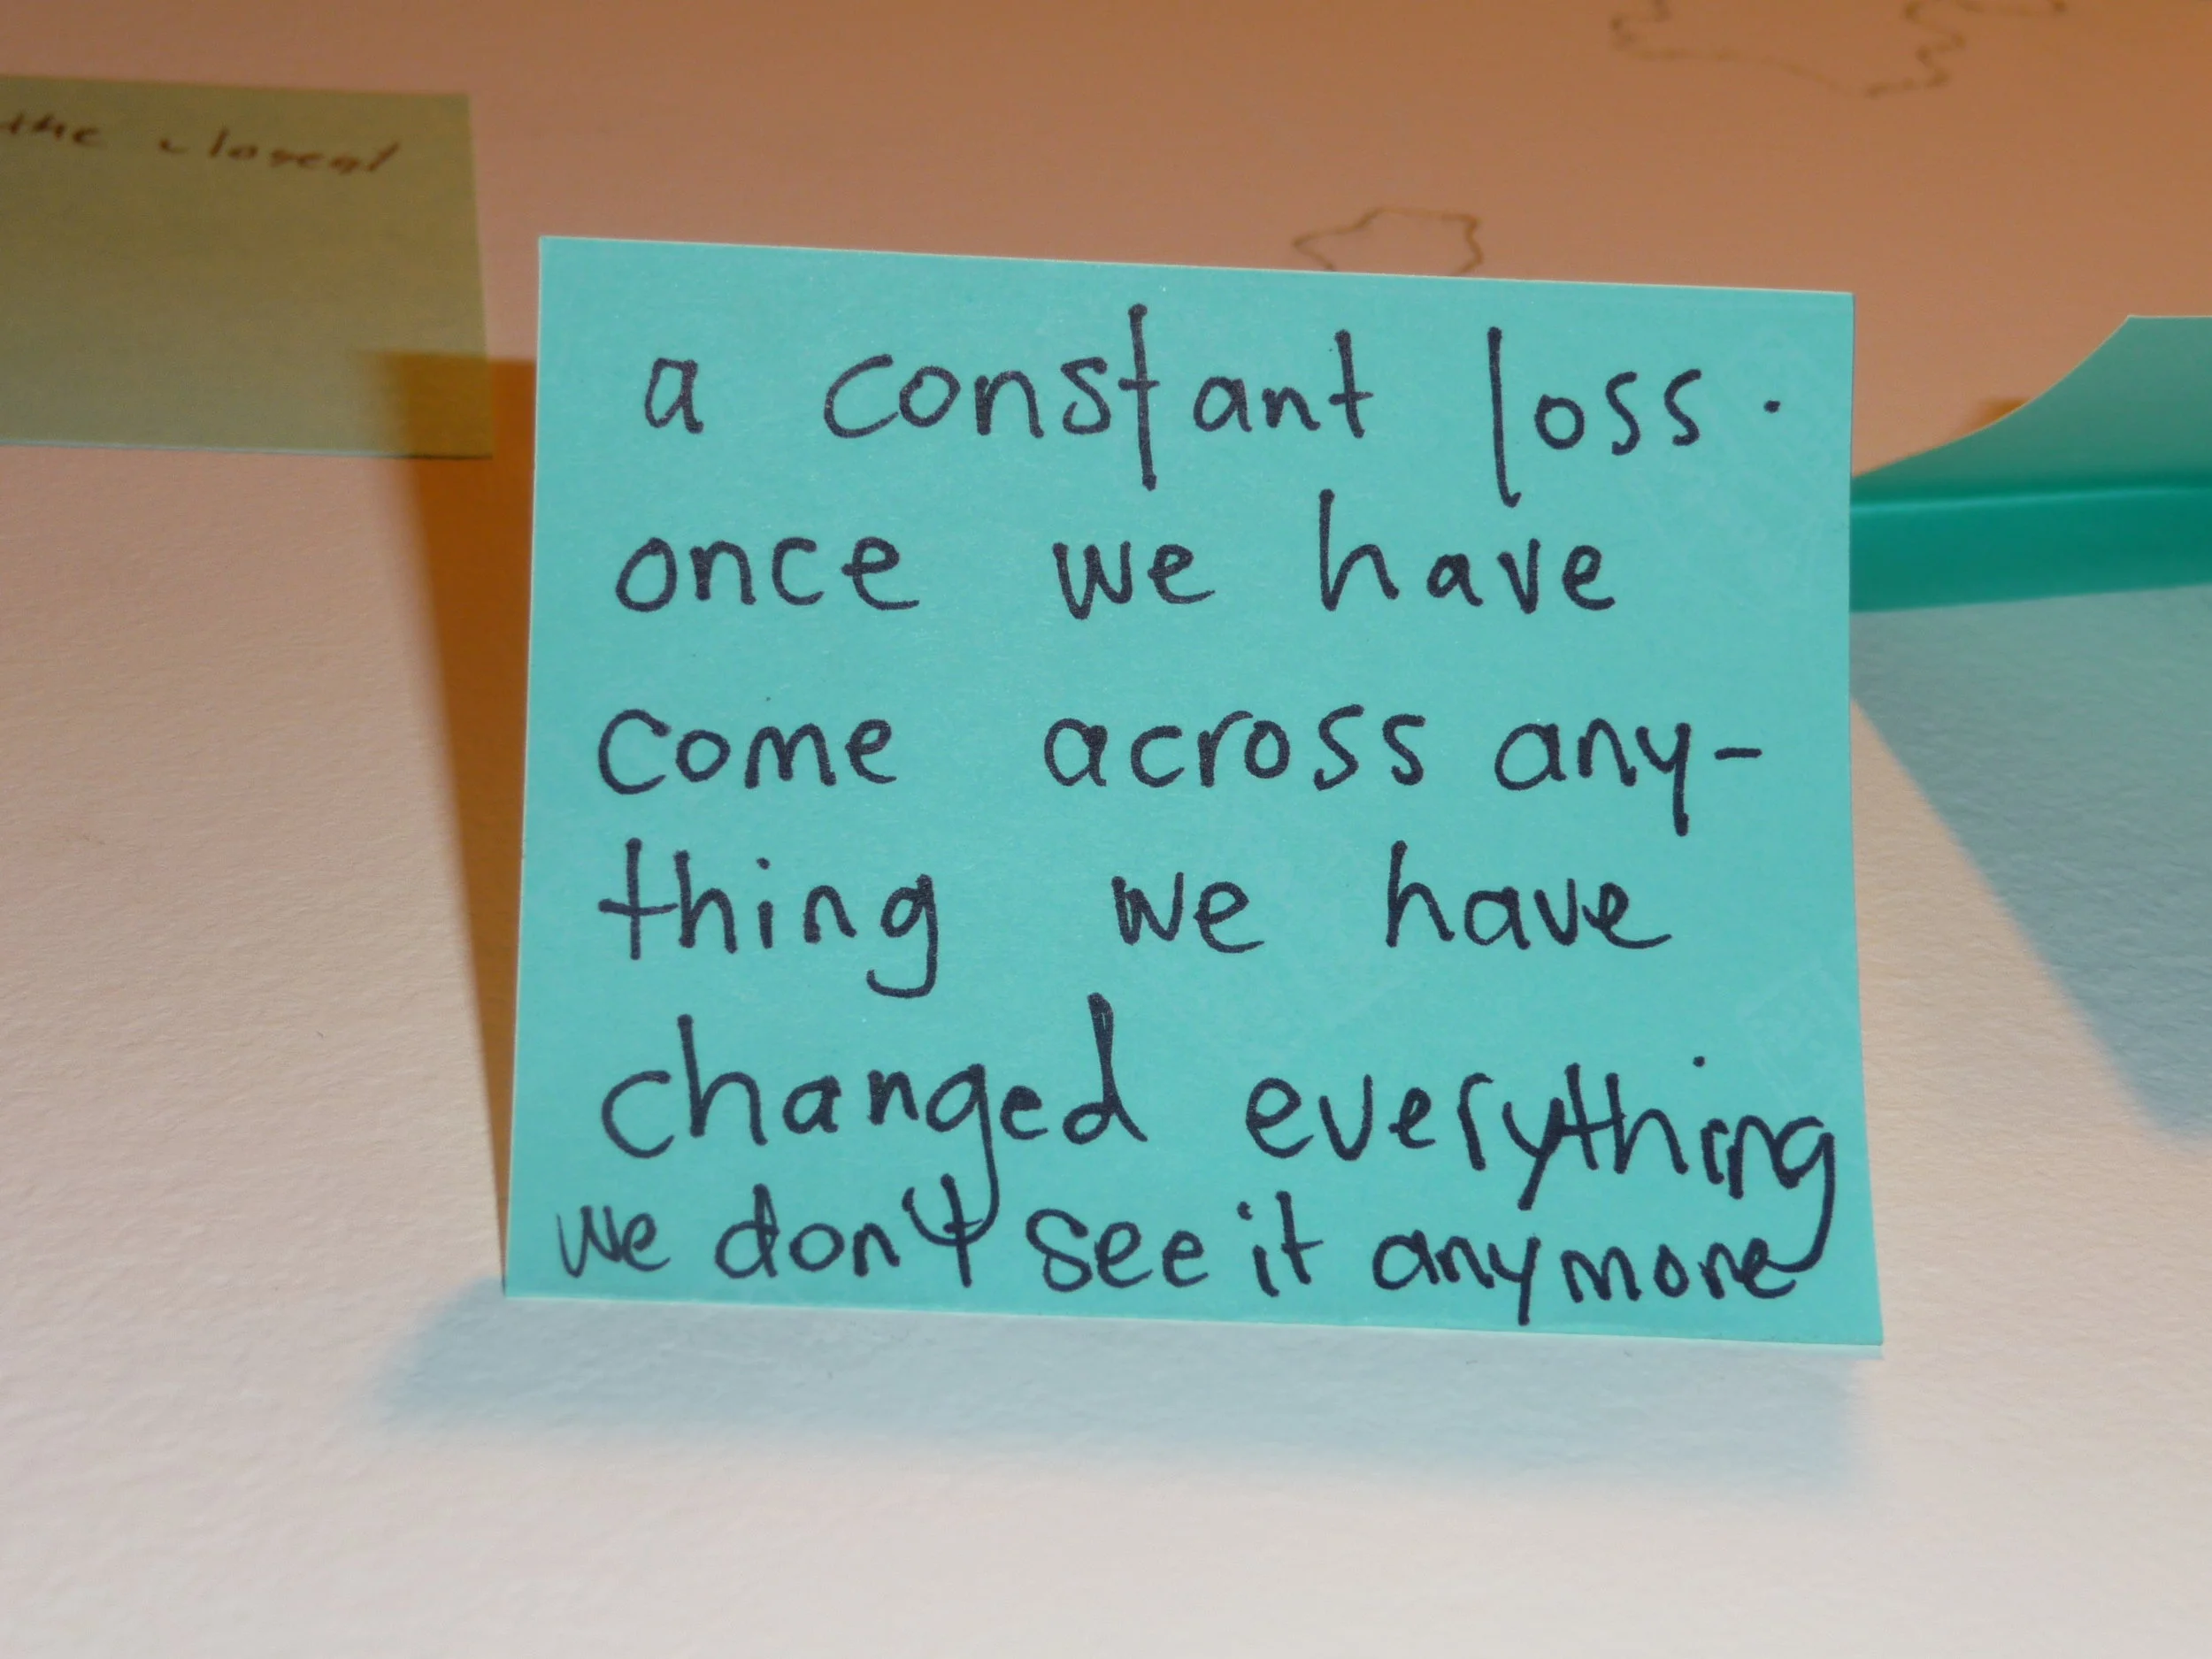 the closest
a constant loss.
once we have
come across any-
thing we have
changed everything
we don't see it anymore